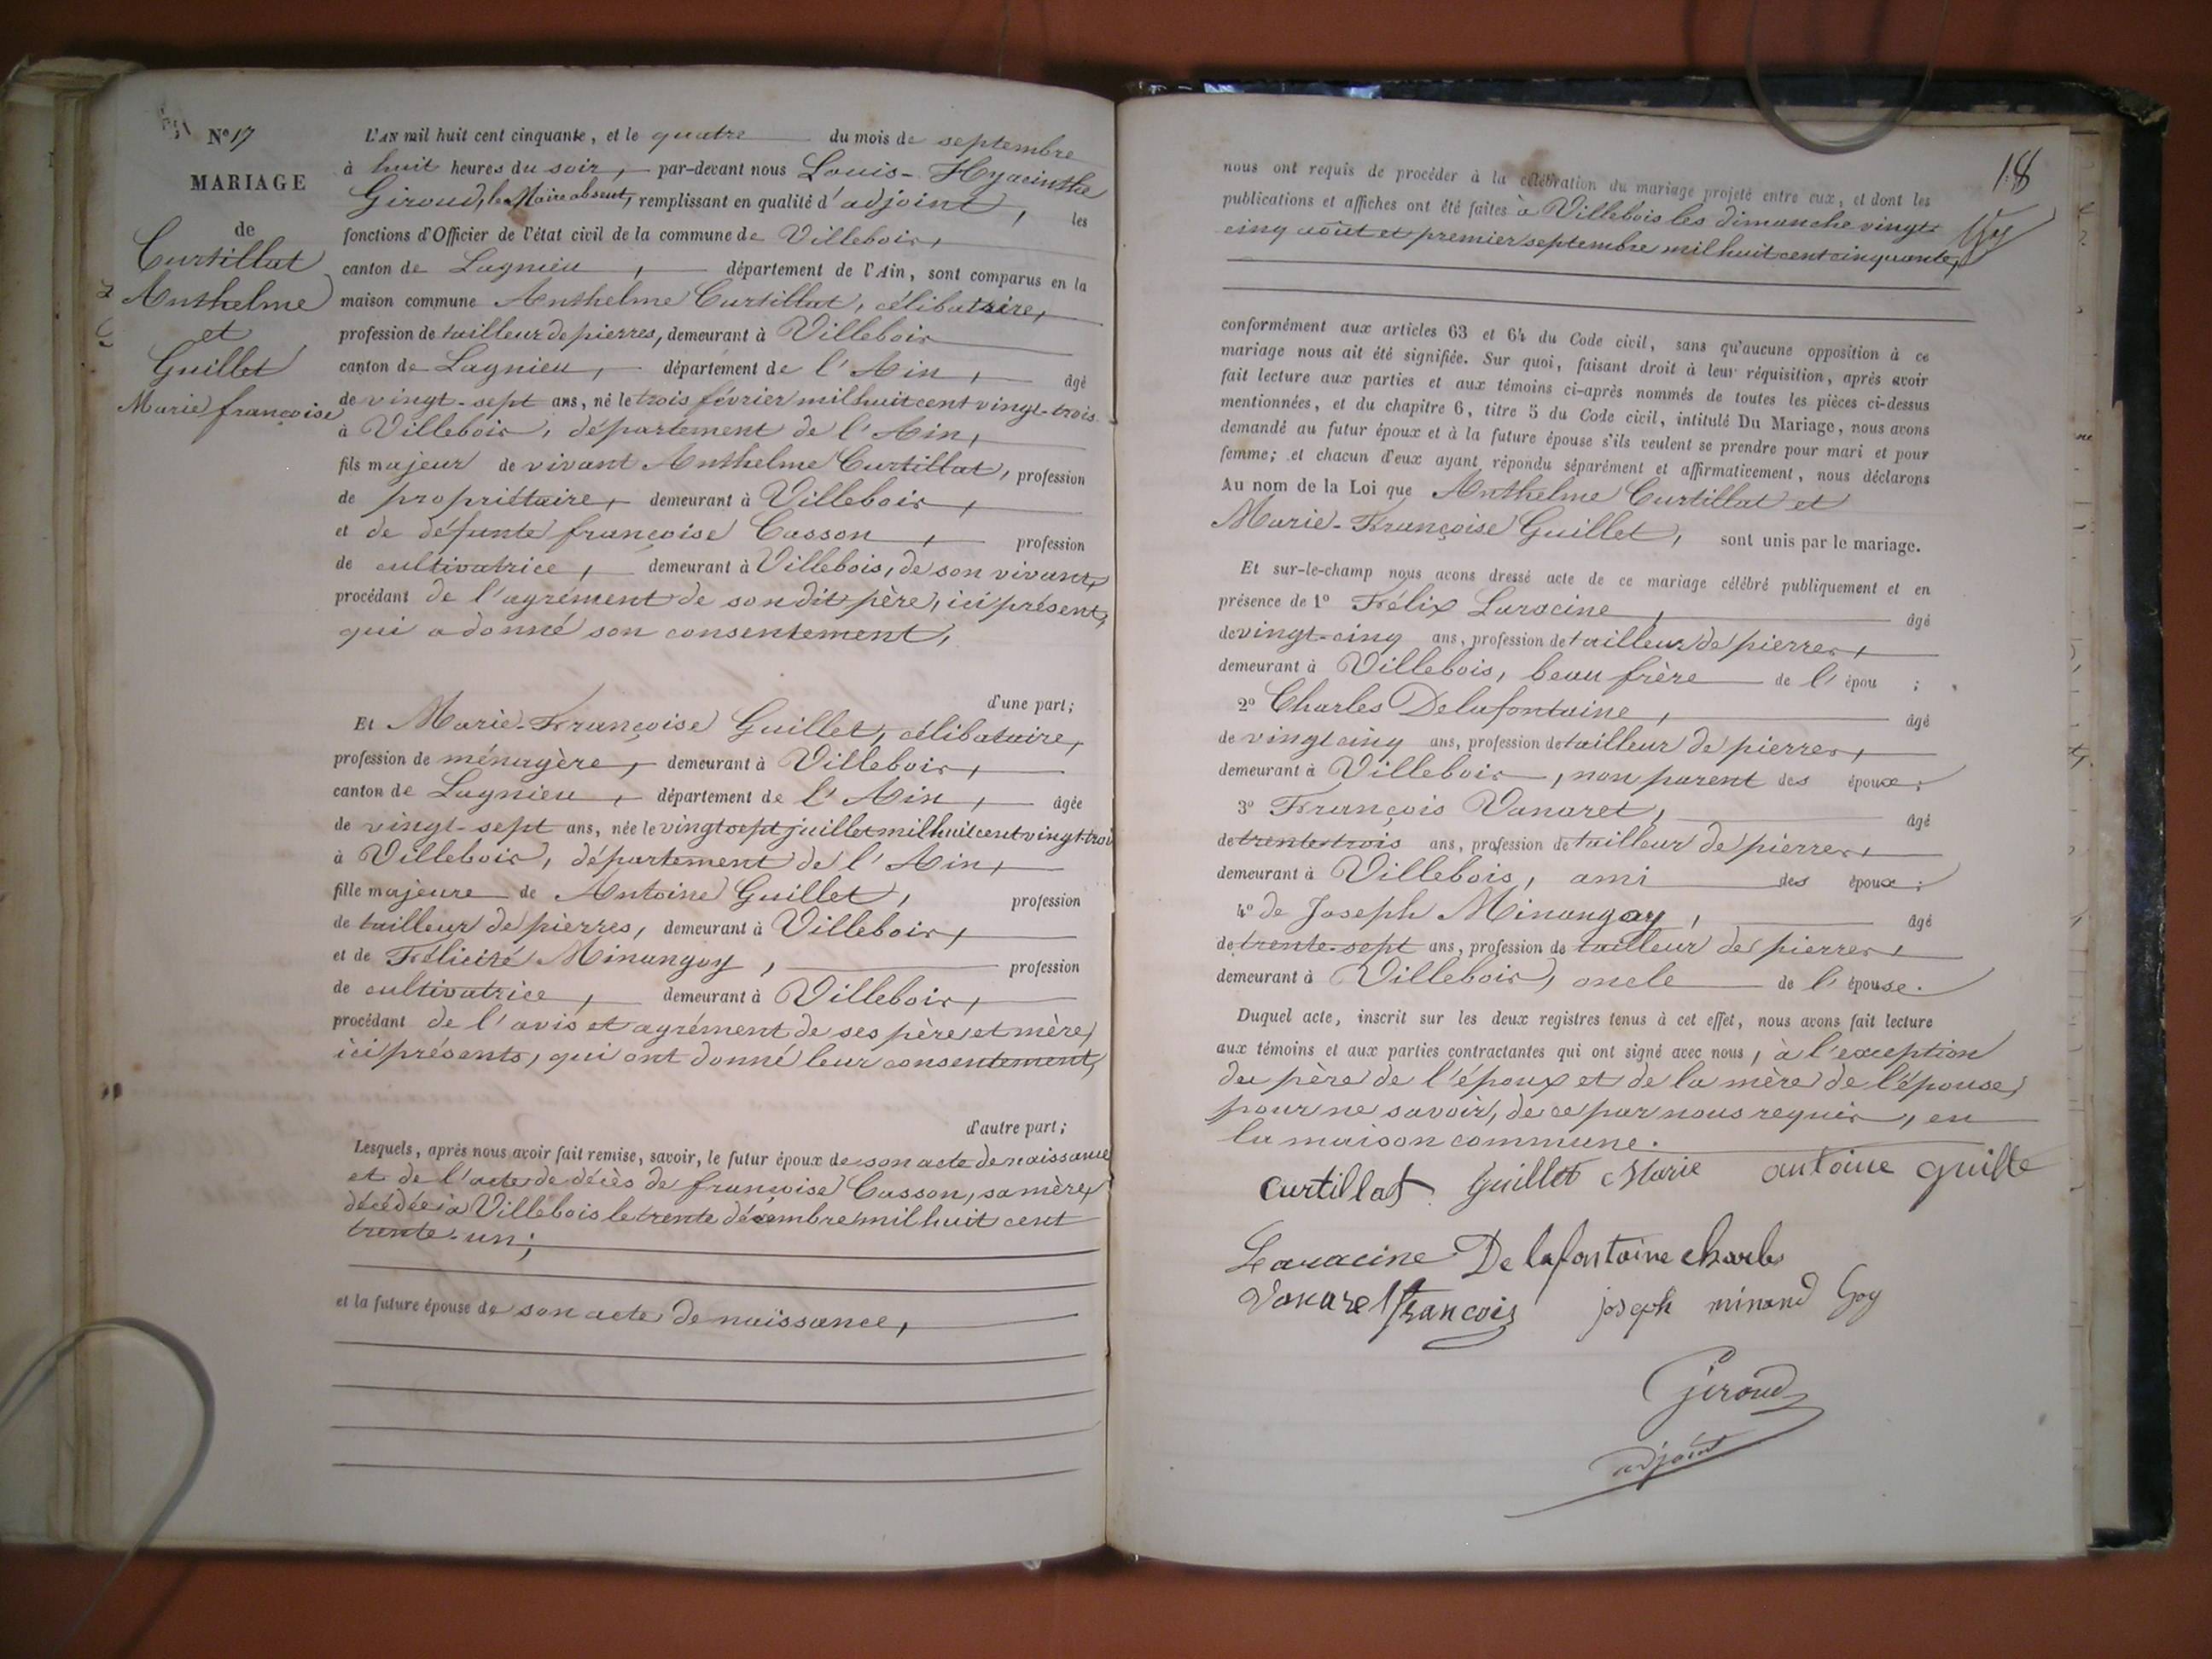 Nº 17
MARIAGE
de
Curtillat
Anthelme
et
Guillet
Marie françoise
L'AN mil huit cent cinquante, et le quatre du mois de septembre
à huit heures du soir, par-devant nous Louis-Hyacinthe
Giroud, le Maire absent, remplissant en qualité d'adjoint, les
fonctions d'Officier de l'état civil de la commune de Villebois,
canton de Lagnieu, département de l'Ain, sont comparus en la
maison commune Anthelme Curtillat, célibataire,
profession de tailleur de pierres, demeurant à Villebois
canton de Lagnieu, département de l'Ain, âgé
de vingt-sept ans, né le trois février mil huit cent vingt-trois
à Villebois, département de l'Ain,
fils majeur de vivant Anthelme Curtillat, profession
de propriétaire, demeurant à Villebois,
et de défunte françoise Casson, profession
de cultivatrice, demeurant à Villebois, de son vivant,
procédant de l'agrément de son dit père, ici présent,
qui a donné son consentement,
d'une part;
Et Marie-Françoise Guillet, célibataire,
profession de ménagère, demeurant à Villebois,
canton de Lagnieu, département de l'Ain, âgée
de vingt-sept ans, née le vingt sept juillet mil huit cent vingt-trois
à Villebois, département de l'Ain,
fille majeure de Antoine Guillet, profession
de tailleur de pierres, demeurant à Villebois,
et de Félicité Minangoy, profession
de cultivatrice, demeurant à Villebois,
procédant de l'avis et agrément de ses père et mère,
ici présents, qui ont donné leur consentement,
d'autre part;
Lesquels, après nous avoir fait remise, savoir, le futur époux de son acte de naissance
et de l'acte de décès de françoise Casson, sa mère,
décédée à Villebois le trente décembre mil huit cent
trente-un;
et la future épouse de son acte de naissance,
18
nous ont requis de procéder à la célébration du mariage projeté entre eux, et dont les
publications et affiches ont été faites à Villebois les dimanche vingt
cinq août et premier septembre mil huit cent cinquante,
conformément aux articles 63 et 64 du Code civil, sans qu'aucune opposition à ce
mariage nous ait été signifiée. Sur quoi, faisant droit à leur réquisition, après avoir
fait lecture aux parties et aux témoins ci-après nommés de toutes les pièces ci-dessus
mentionnées, et du chapitre 6, titre 5 du Code civil, intitulé Du Mariage, nous avons
demandé au futur époux et à la future épouse s'ils veulent se prendre pour mari et pour
femme; et chacun d'eux ayant répondu séparément et affirmativement, nous déclarons
Au nom de la Loi que Anthelme Curtillat et
Marie-Françoise Guillet, sont unis par le mariage.
Et sur-le-champ nous avons dressé acte de ce mariage célébré publiquement et en
présence de 1º Félix Laracine, âgé
de vingt-cinq ans, profession de tailleur de pierres,
demeurant à Villebois, beau frère de l'épou ;
2º Charles Delafontaine, âgé
de vingt cinq ans, profession de tailleur de pierres,
demeurant à Villebois, non parent des époux;
3º François Vanaret, âgé
de trente trois ans, profession de tailleur de pierres,
demeurant à Villebois, ami des époux;
4º de Joseph Minangoy, âgé
de trente-sept ans, profession de tailleur de pierres,
demeurant à Villebois, oncle de l'épouse.
Duquel acte, inscrit sur les deux registres tenus à cet effet, nous avons fait lecture
aux témoins et aux parties contractantes qui ont signé avec nous, à l'exception
du père de l'époux et de la mère de l'épouse,
pour ne savoir, de ce par nous requis, en
la maison commune.
Curtillat Guillet Marie antoine guille
Laracine Delafontaine charles
Vanaret françois joseph minand Goy
Giroud
adjoint